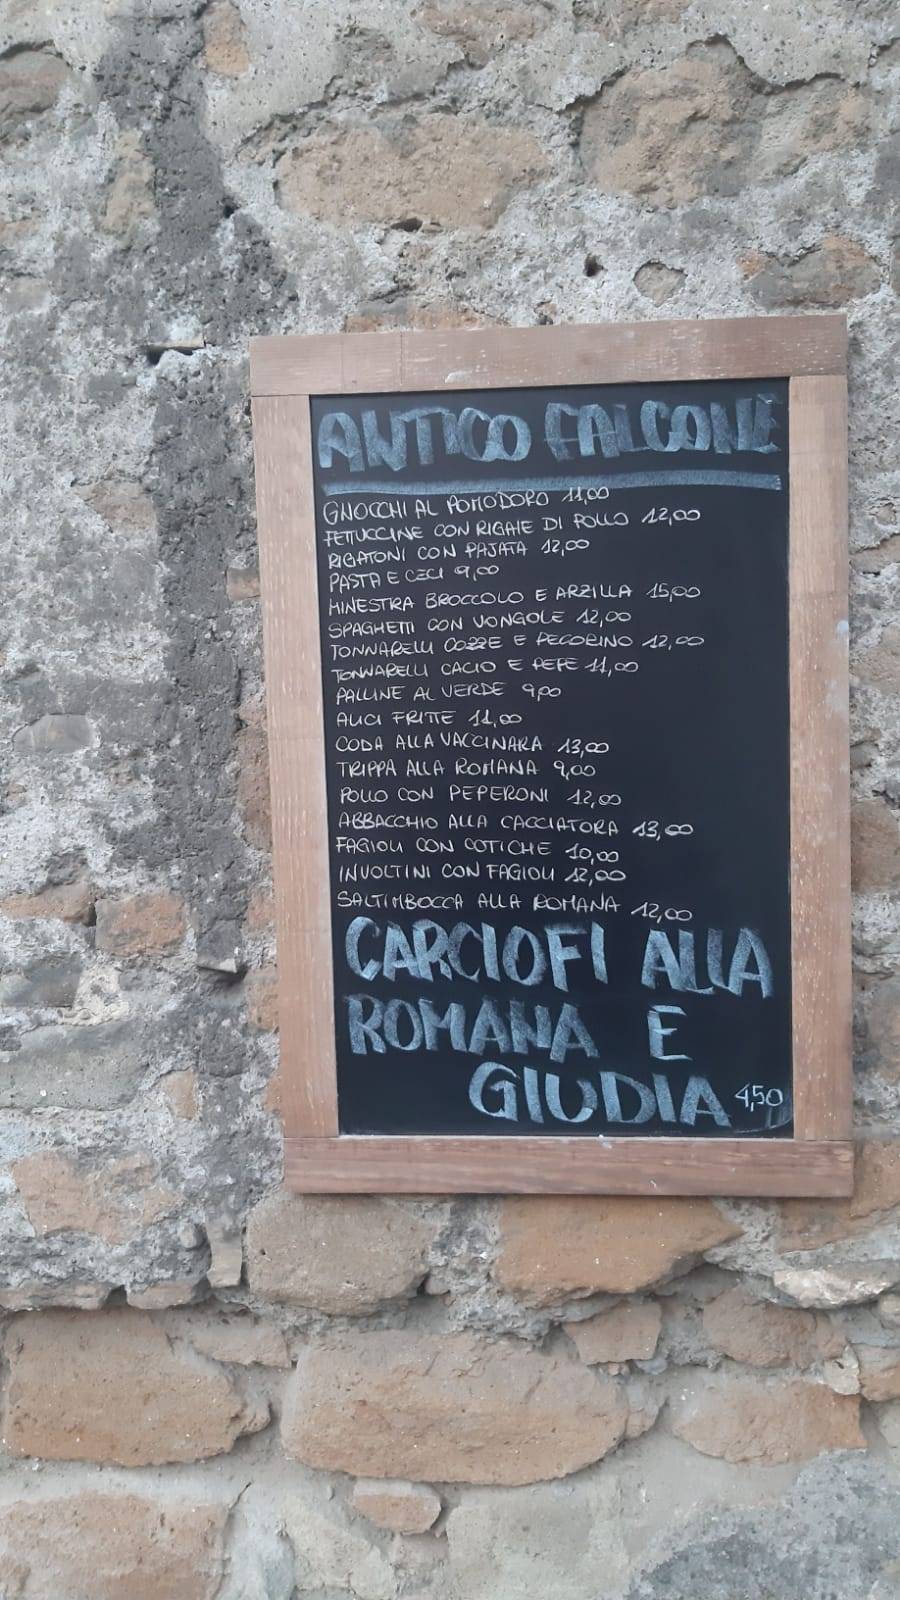 ANTICO FALCONE
GNOCCHI AL POMODORO 11,00
FETTUCCINE CON RIGAIE DI POLLO 12,00
RIGATONI CON PAJATA 12,00
PASTA E CECI 9,00
MINESTRA BROCCOLO E ARZILLA 15,00
SPAGHETTI CON VONGOLE 12,00
TONNARELLI COZZE E PECORINO 12,00
TONNARELLI CACIO E PEPE 11,00
PALLINE AL VERDE 9,00
ALICI FRITTE 11,00
CODA ALLA VACCINARA 13,00
TRIPPA ALLA ROMANA 9,00
POLLO CON PEPERONI 12,00
ABBACCHIO ALLA CACCIATORA 13,00
FAGIOLI CON COTICHE 10,00
INVOLTINI CON FAGIOLI 12,00
SALTIMBOCCA ALLA ROMANA 12,00
CARCIOFI ALLA
ROMANA E
GIUDIA 4,50